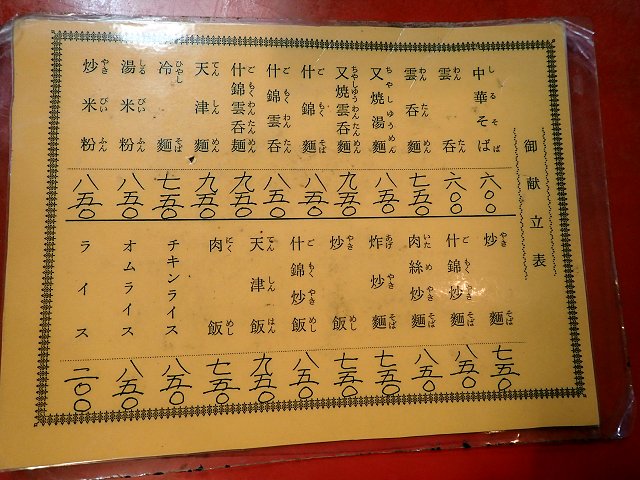 御献立表
中華そば しるそば 六〇〇
雲呑 わんたん 六〇〇
雲呑麵 わんたんめん 七五〇
又焼湯麵 ちやしゆうめん 八五〇
又焼雲呑麵 ちやしゆうわんたんめん 九五〇
什錦麵 ごもくそば 八五〇
什錦雲呑 ごもくわんたん 八五〇
什錦雲呑麵 ごもくわんたんめん 九五〇
天津麵 てんしんめん 九五〇
冷麵 ひやしそば 七五〇
湯米粉 しるびいふん 八五〇
炒米粉 やきびいふん 八五〇
炒麵 やきそば 七五〇
什錦炒麵 ごもくやきそば 八五〇
肉絲炒麵 いためやきそば 八五〇
炸炒麵 あげやきそば 七五〇
炒飯 やきめし 七五〇
什錦炒飯 ごもくやきめし 八五〇
天津飯 てんしんはん 九五〇
肉飯 にくめし 七五〇
チキンライス 八五〇
オムライス 八五〇
ライス 二〇〇